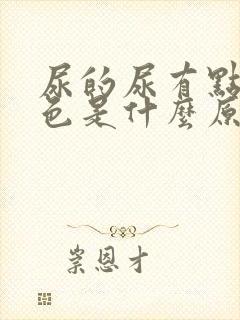 尿的尿有點
色是什麼原
崇恩才